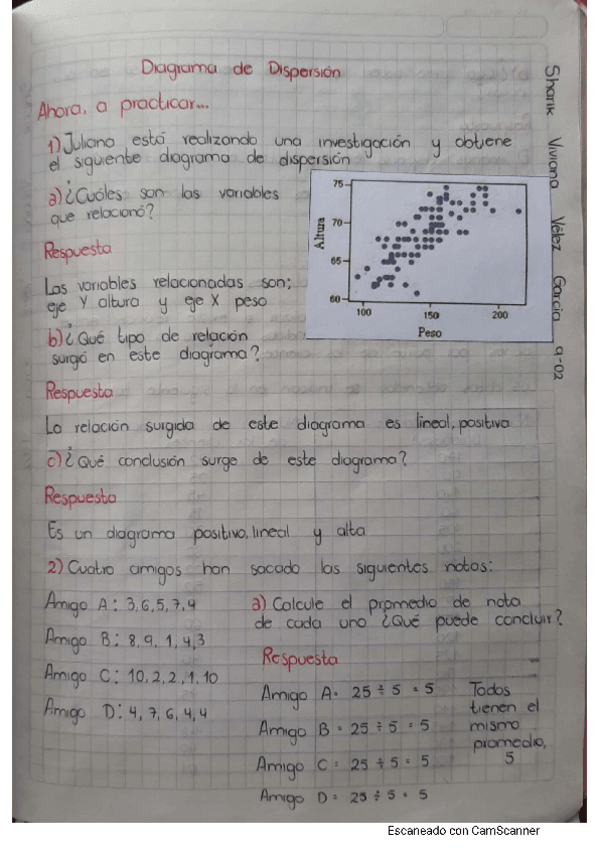 Diagrama de Dispersión
Ahora, a practicar...
1) Juliana está realizando una investigación y obtiene
el siguiente diagrama de dispersión
a) ¿Cuáles son las variables
que relacionó?
Respuesta
Las variables relacionadas son;
eje Y altura y eje X peso
75
70
65
60
Altura
100 150 200
Peso
b) ¿Qué tipo de relación
surgó en este diagrama?
Respuesta
La relación surgida de este diagrama es lineal, positiva
c) ¿Qué conclusión surge de este diagrama?
Respuesta
Es un diagrama positivo, lineal y alta
2) Cuatro amigos han sacado las siguientes notas:
Amigo A: 3, 6, 5, 7, 4
Amigo B: 8, 9, 1, 4, 3
Amigo C: 10, 2, 2, 1, 10
Amigo D: 4, 7, 6, 4, 4
a) Calcule el promedio de nota
de cada uno ¿Qué puede concluir?
Respuesta
Amigo A= 25 ÷ 5 = 5
Amigo B = 25 ÷ 5 = 5
Amigo C = 25 ÷ 5 = 5
Amigo D = 25 ÷ 5 = 5
Todos
tienen el
mismo
promedio,
5
Sharik Viviana Vélez García 9-02
Escaneado con CamScanner